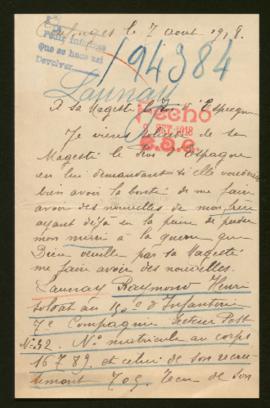 le 7 aout 1918.
Pedir informe
Que se haga así
Devolver
194384
Launay
A sa Magesté le Roi d'Espagne
Hecho
1918
Je viens de sa
Magesté le Roi d'Espagne
en lui demandant si elle voudrait
bien avoir la bonté de me faire
avoir des nouvelles de mon frère
ayant déjà eu la peine de perdre
mon mari à la guerre que
Dieu veuille par sa Magesté
me faire avoir des nouvelles.
Launay Raymond Henri
soldat au 130e d'Infanterie
7e Compagnie Secteur Post
No 92. No matricule au corps
16789 et celui de son recru
tement 709. de son